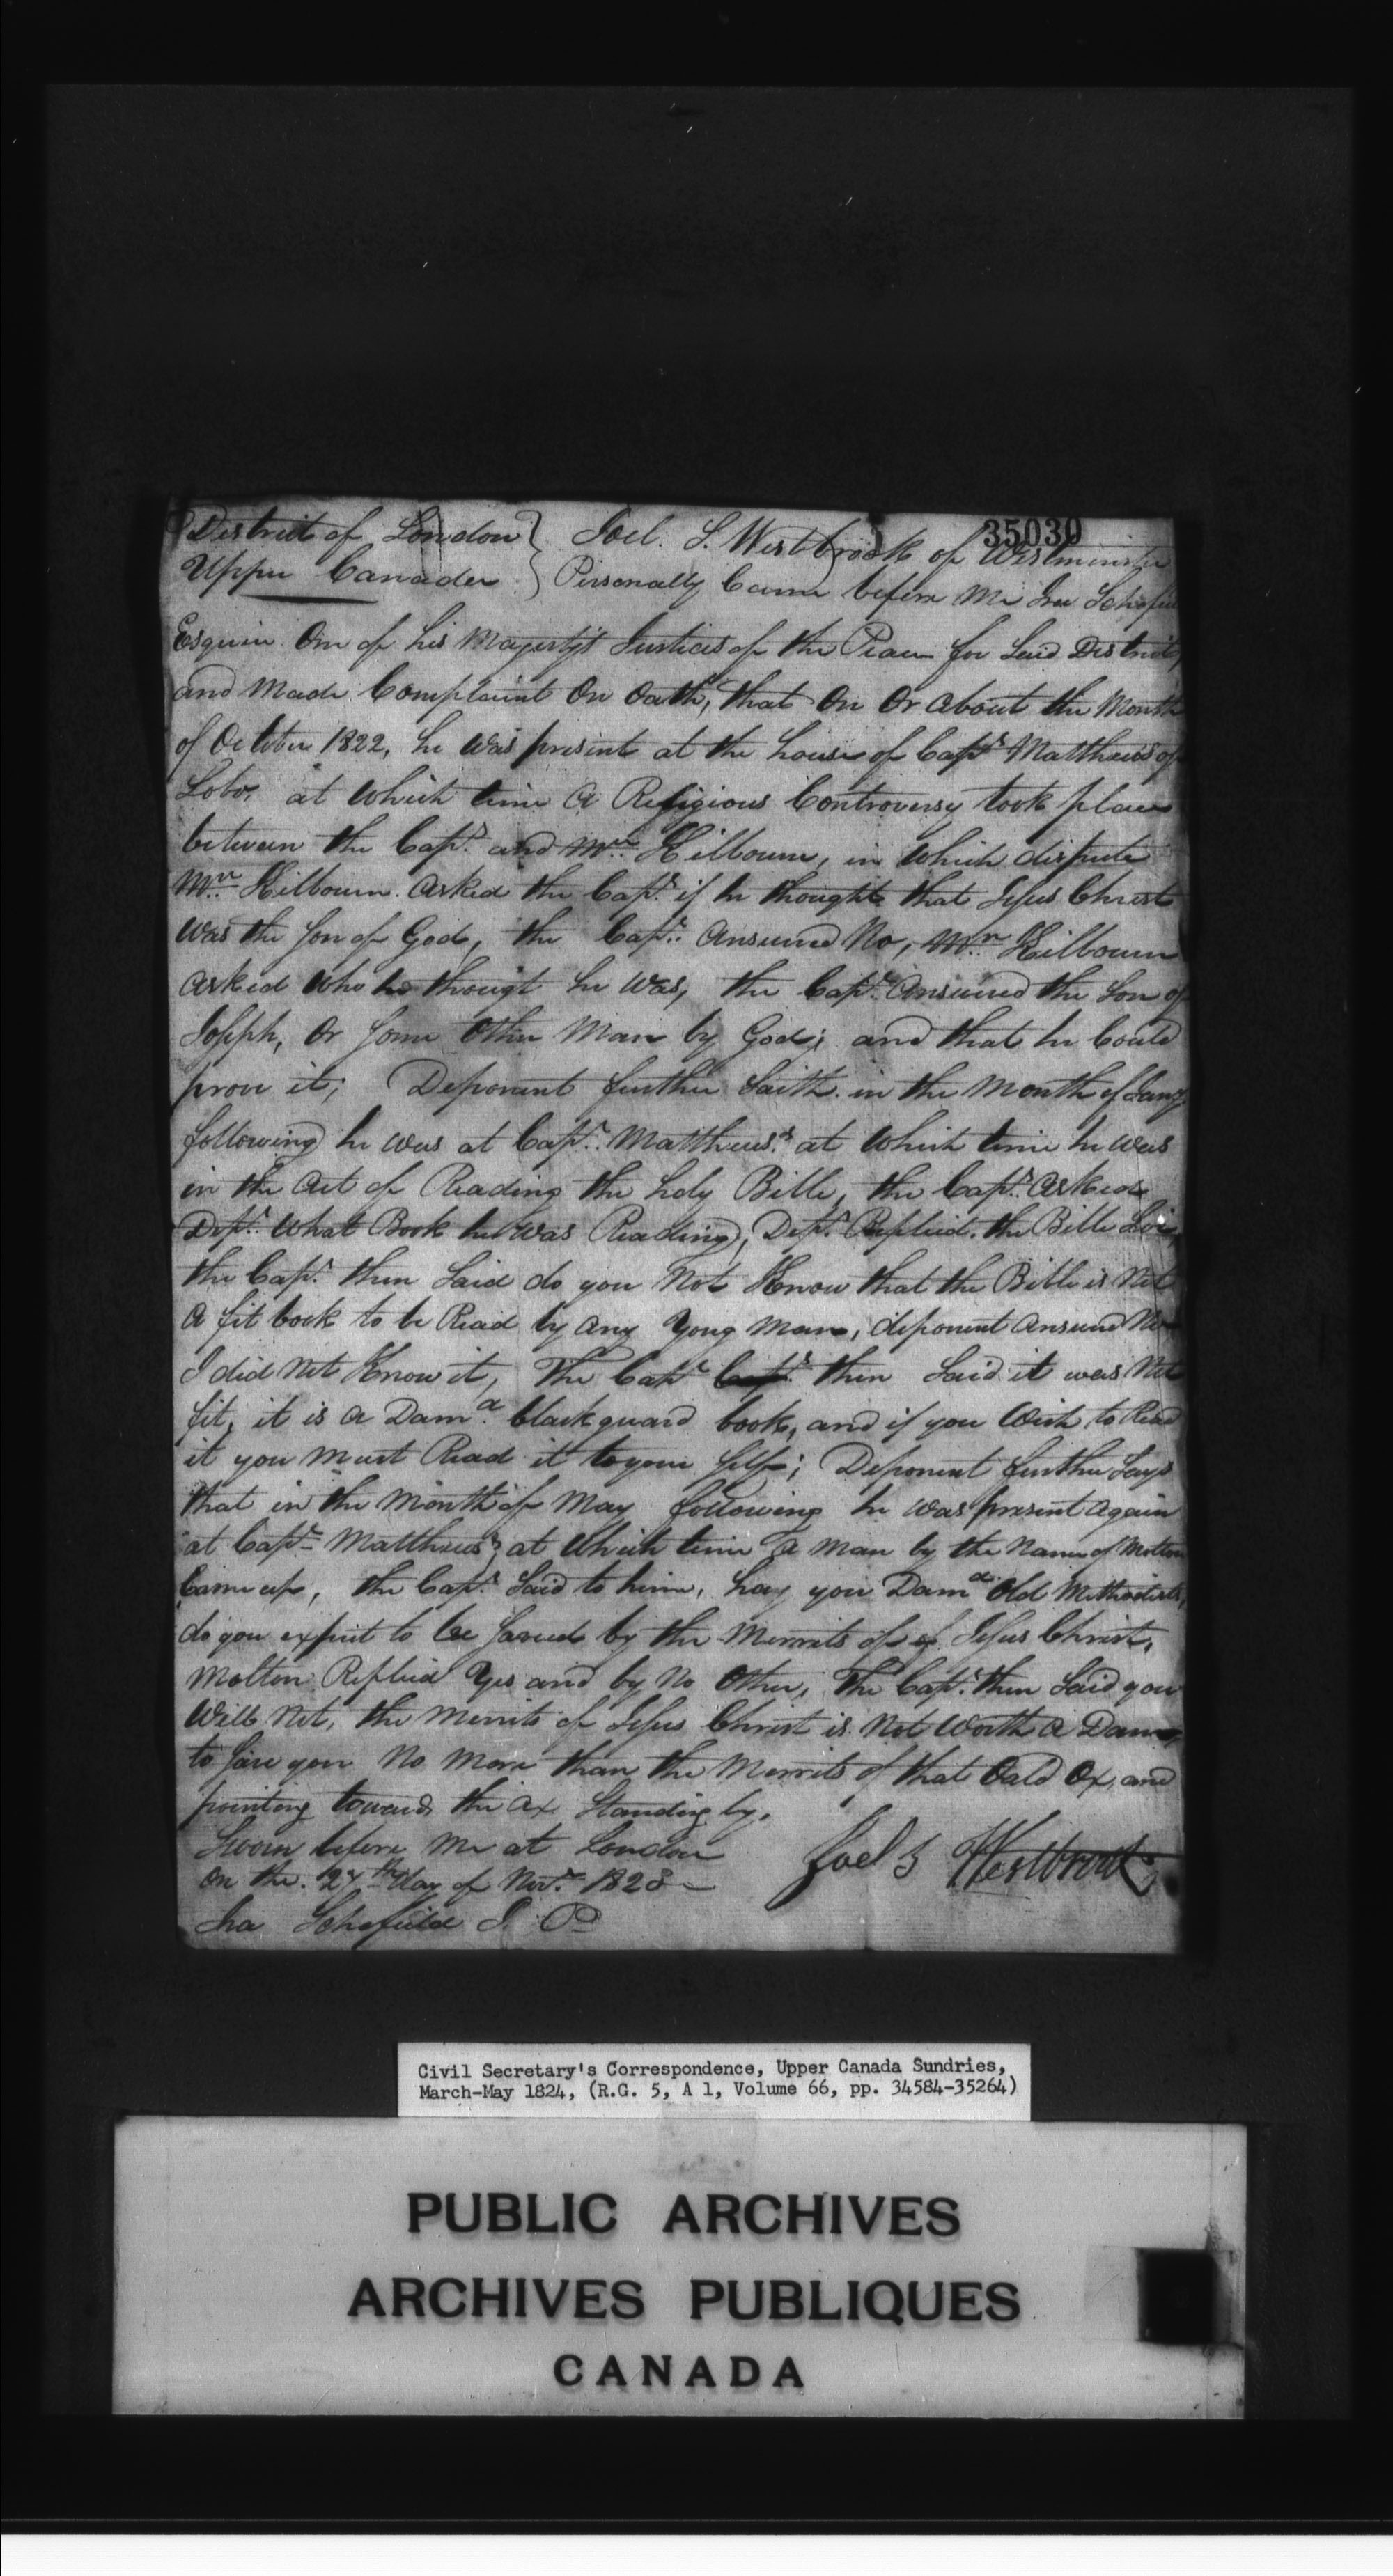 35030
District of London } Joel. S. Westbrook of Westminster
Upper Canada } Personally Came before Me Ira Schofield
Esquire One of his Majesty's Justices of the Peace for Said District
and Made Complaint On Oath, that On Or about the Month
of October 1822, he was present at the house of Capt. Matthews of
Lobo, at which time a Religious Controversy took place
between the Capt. and Mr. Kilbourn, in which dispute
Mr. Kilbourn. asked the Capt. if he thought that Jesus Christ
was the Son of God, the Capt. Answered No, Mr. Kilbourn
asked who he thought he was, the Capt. Answered the Son of
Joseph, Or Some Other Man by God; and that he Could
prove it; Deponent further Saith. in the Month of Jany
following he was at Capt. Matthews's at which time he was
in the act of Reading the holy Bible, the Capt. asked
Dept. What Book he was Reading, Dept. Replied. the Bible Sir,
the Capt. then Said do you Not Know that the Bible is Not
a fit book to be Read by any Yong Man, deponent answered No
I did Not Know it, The Capt Capt. then Said it was Not
fit, it is a Damd. blackguard book, and if you Wish to Read
it you Must Read it to your Self; Deponent further Says
that in the Month of May following he was present again
at Capt. Matthews's, at which time a Man by the Name of Molton
Came up, the Capt. Said to him, hay you Damd. Old Methodists,
do you expect to be Saved by the Merrits of of Jesus Christ,
Molton Replied Yes and by No Other, The Capt. then Said you
Will Not, the Merrits of Jesus Christ is Not Worth a Damn
to Save you No More than the Merrits of that Oald Ox, and
pointing towards the Ox Standing by.
Sworn before Me at London
On the. 27th day of Novr. 1823 —
Ira Schofield J. P
Joel S Westbrook
Civil Secretary's Correspondence, Upper Canada Sundries,
March-May 1824, (R.G. 5, A 1, Volume 66, pp. 34584-35264)
PUBLIC ARCHIVES
ARCHIVES PUBLIQUES
CANADA